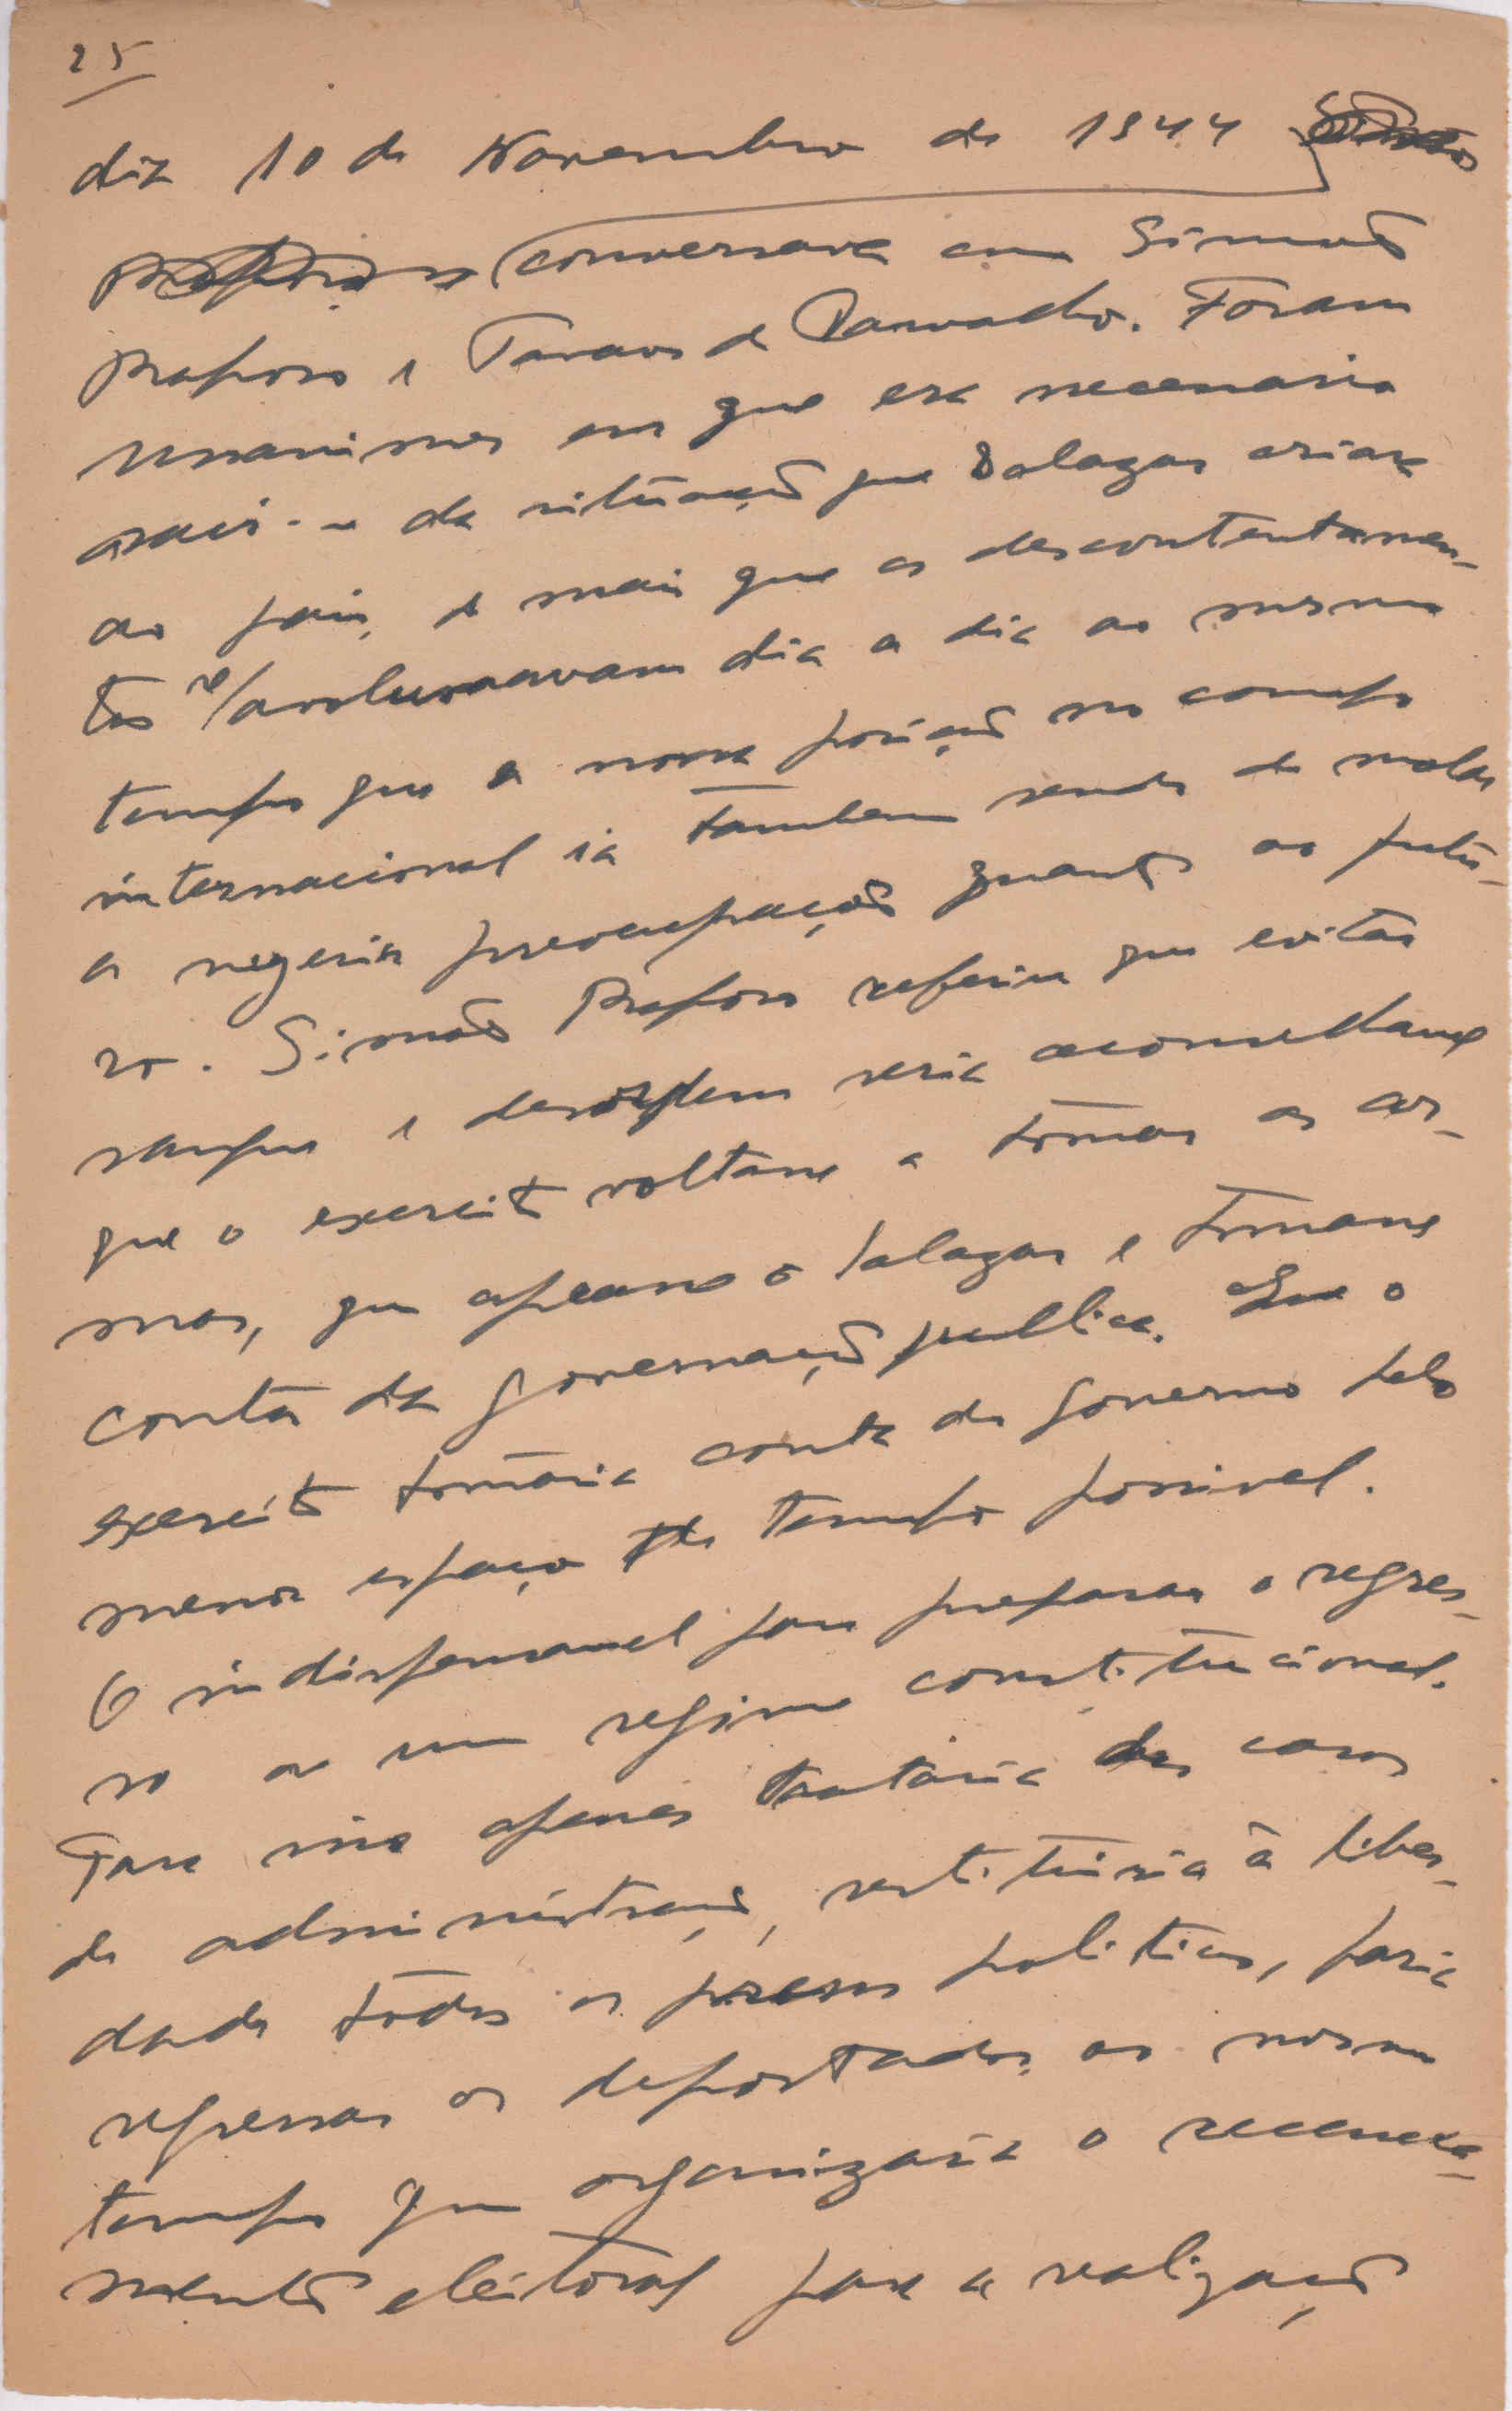 25
dia 10 de Novembro de 1944
conversava com Simão
Raposo e Tavares de Carvalho. Foram
unanimes em que era necessario
sair-se da situação que Salazar criara
ao pais, e mais que os descontentamen-
tos se avolumavam dia a dia ao mesmo
tempo que a nossa posição no campo
internacional ia tambem sendo de molde
a sugerir preocupação quanto ao futu-
ro. Simão Raposo referiu que evitar
sangue e desordem seria aconselhavel
que o exercito voltasse a tomar as ar-
mas, que apeasse o Salazar e tomasse
conta da governação publica. Que o
exercito tomaria conta do governo pelo
menor espaço de tempo possivel.
O indispensavel para preparar o regres-
so a um regime constitucional.
Para isso apenas trataria dos casos
de administração, restituiria à liber-
dade todos os presos politicos, faria
regressar os deportados, ao mesmo
tempo que organizaria o recensea-
mento eleitoral para a realização